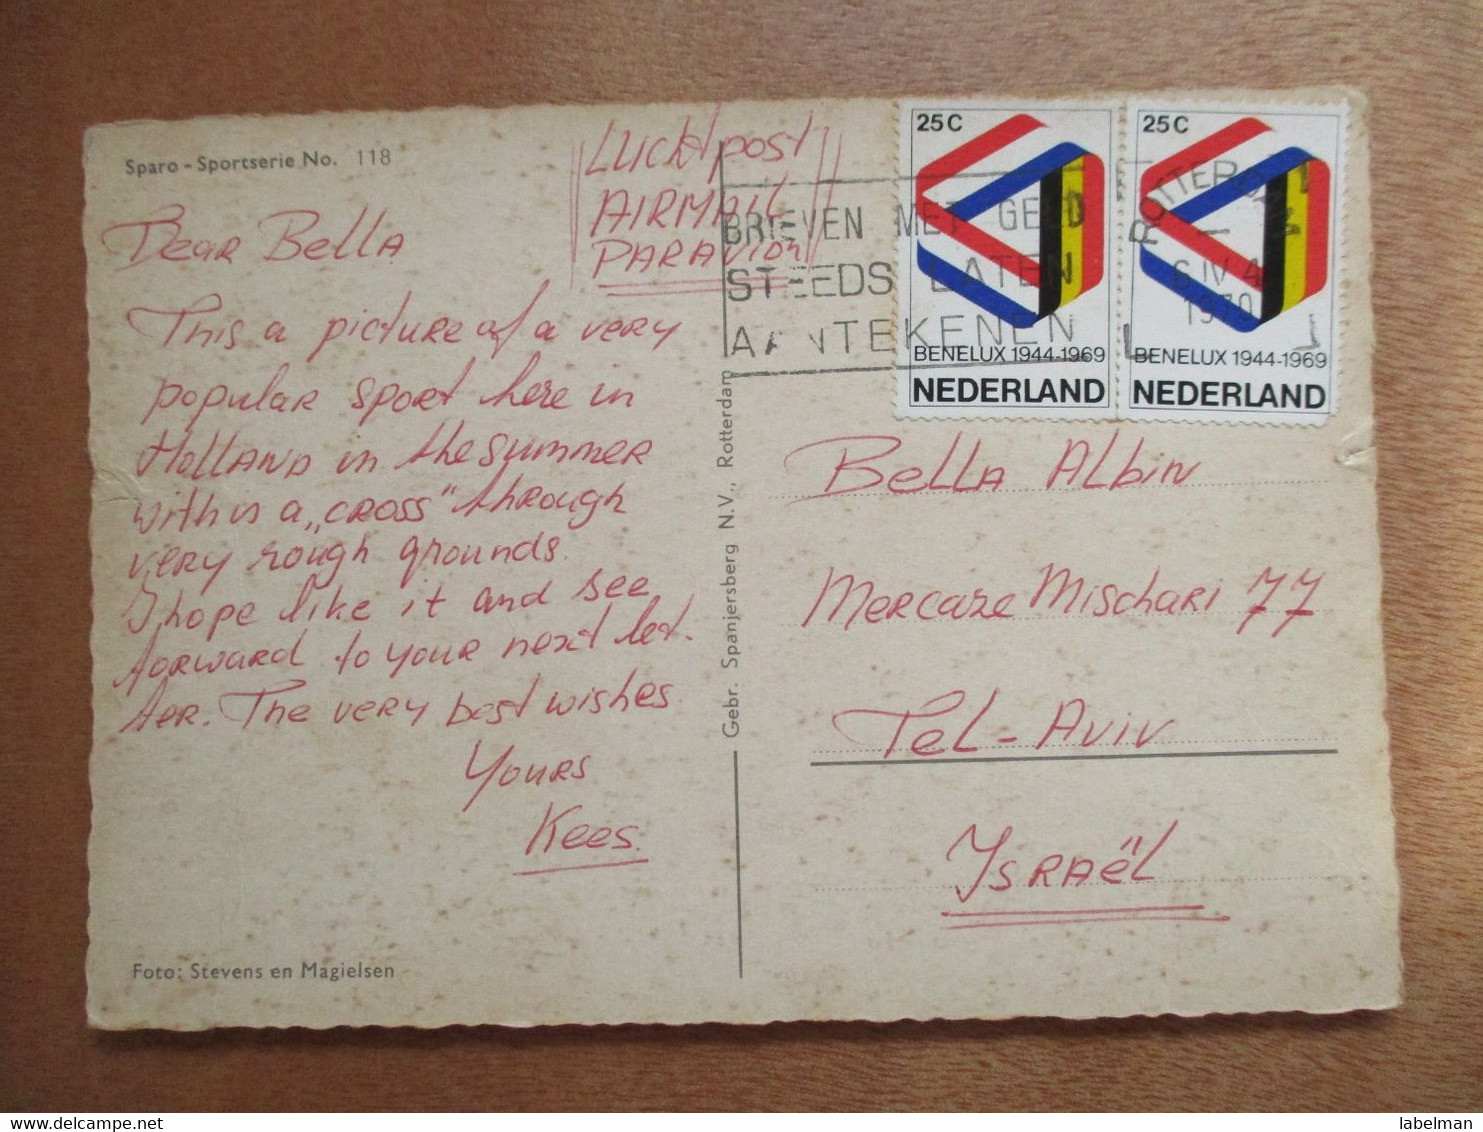 Sparo - Sportserie No. 118
Luchtpost
AIRMAIL
PARAVION
Dear Bella
This a picture of a very
popular sport here in
Holland in the summer
with is a „CROSS" through
very rough grounds.
I hope like it and see
forward to your next let-
ter. The very best wishes
Yours
Kees.
Foto: Stevens en Magielsen
Gebr. Spanjersberg N.V., Rotterdam
BRIEVEN MET GELD
STEEDS LATEN
AANTEKENEN
ROTTERDAM
6 IV 4
1970
25C
BENELUX 1944-1969
NEDERLAND
25C
BENELUX 1944-1969
NEDERLAND
Bella Albin
Mercaze Mischari 77
Tel-Aviv
Israël
delcampe.net
labelman